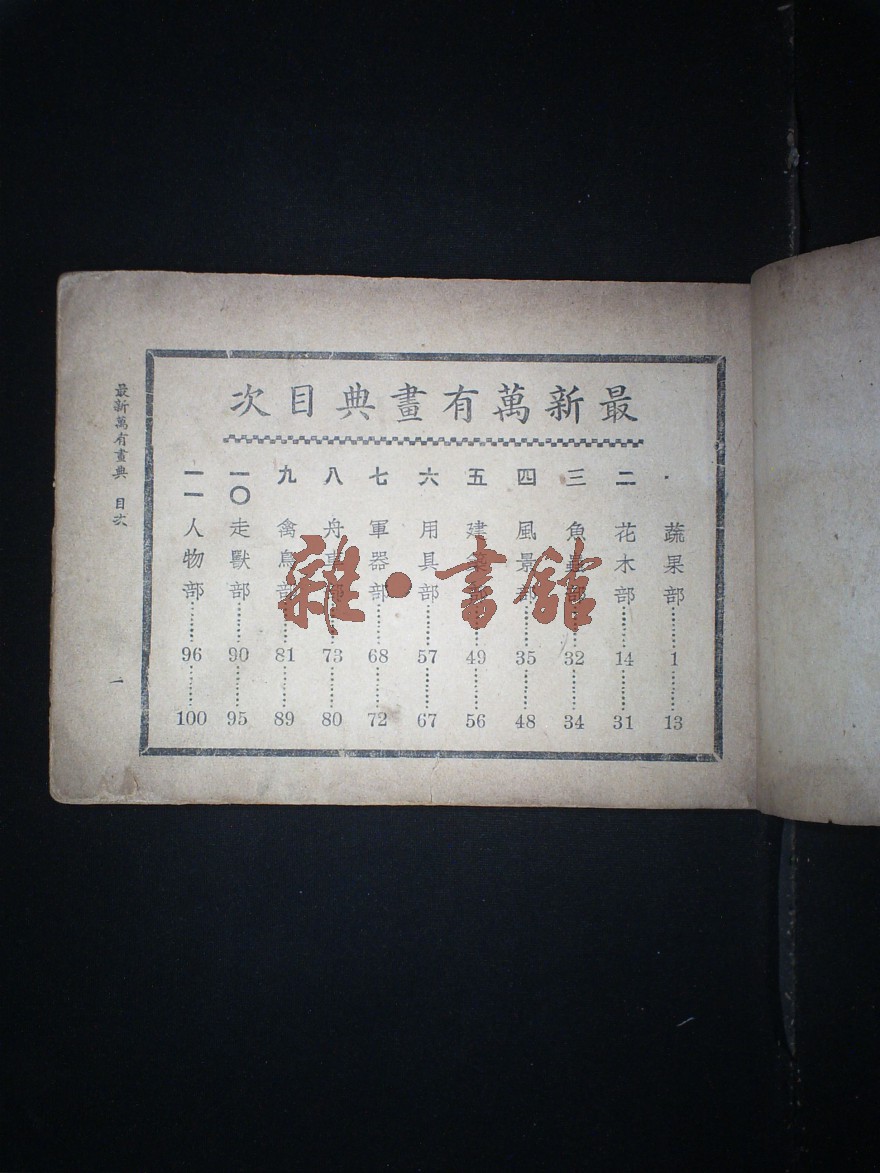 最新萬有畫典目次
蔬果部………1………13
二 花木部………14………31
三 魚蟲部………32………34
四 風景部………35………48
五 建築部………49………56
六 用具部………57………67
七 軍器部………68………72
八 舟車部………73………80
九 禽鳥部………81………89
一〇 走獸部………90………95
一一 人物部………96………100
最新萬有畫典 目次
一
雜·書館